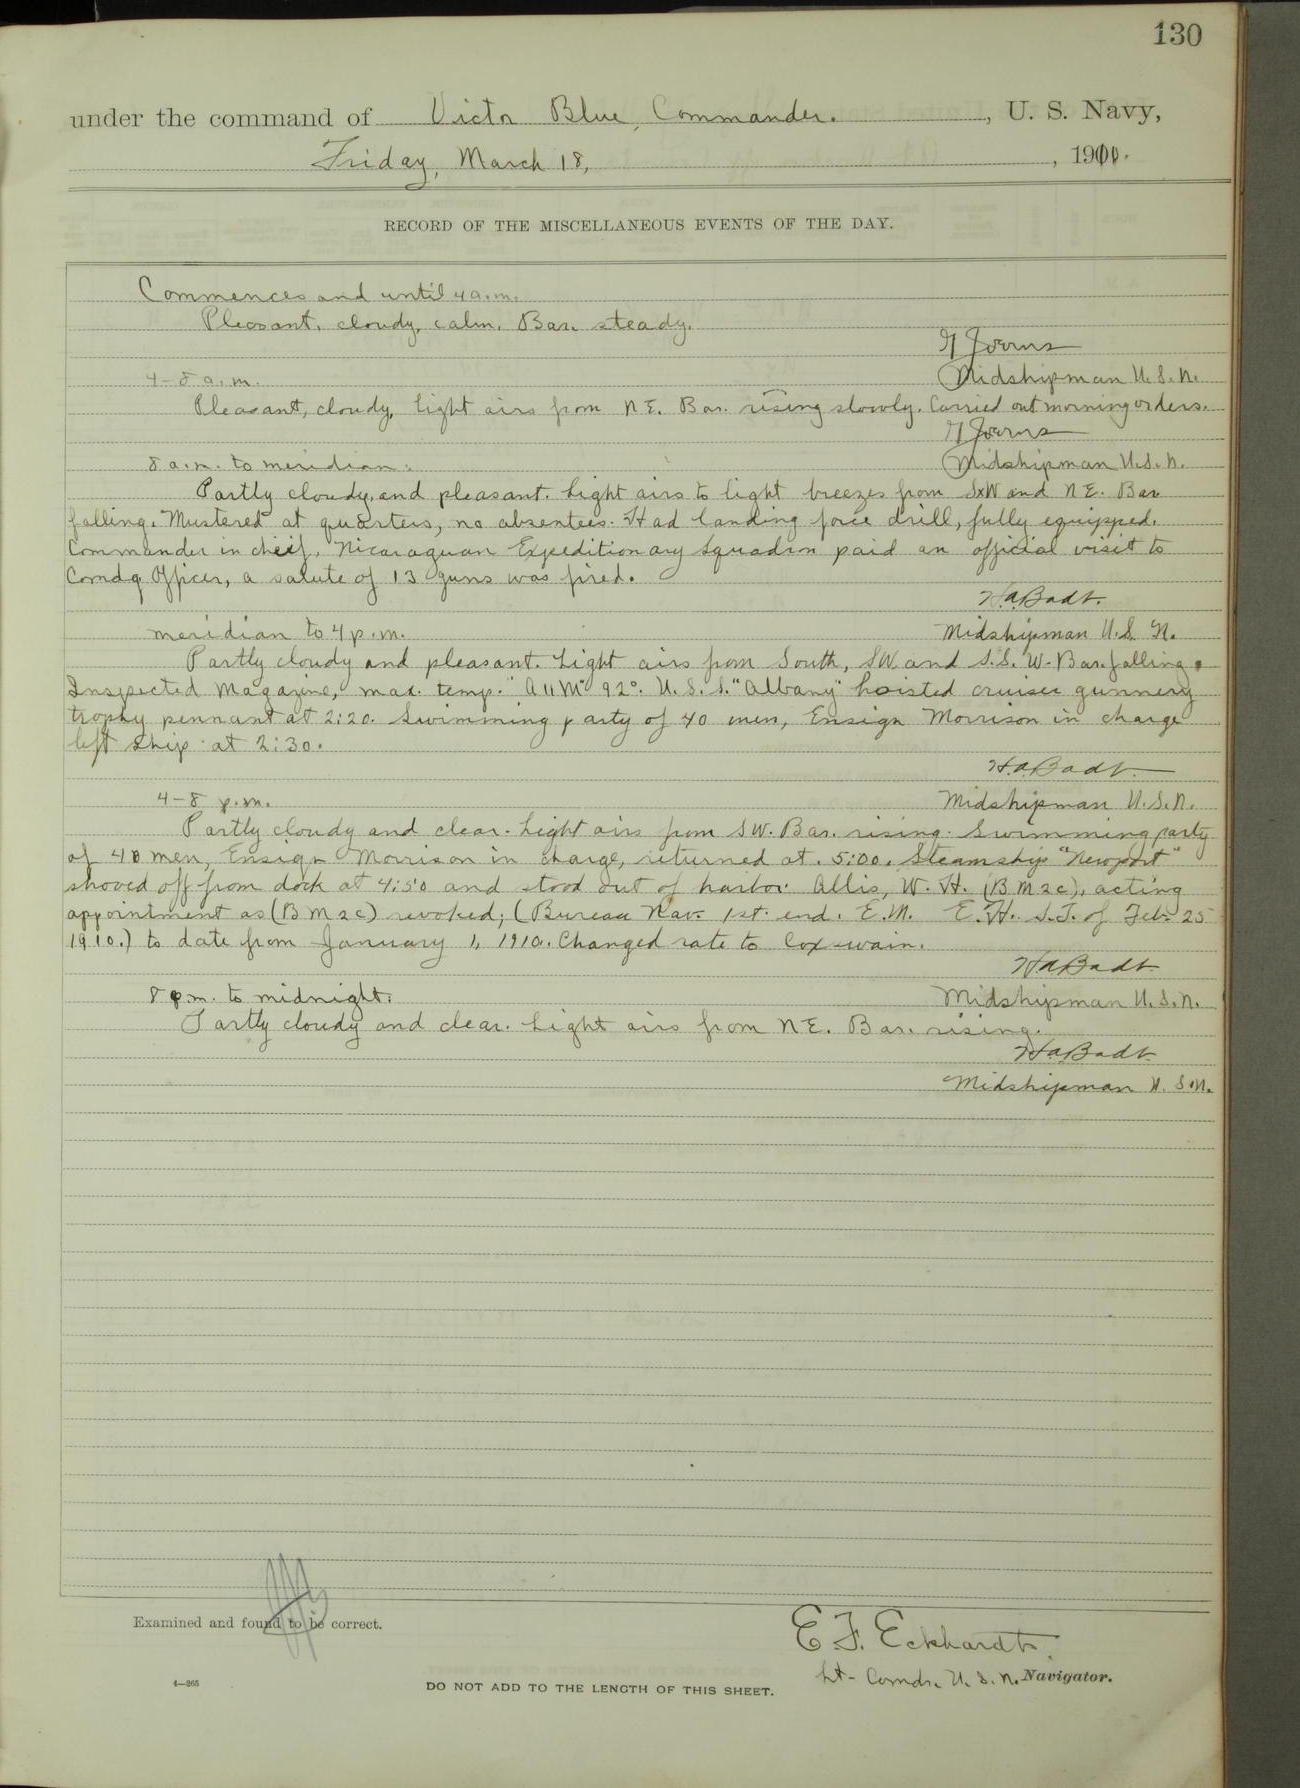 130
under the command of Victor Blue, Commander. , U. S. Navy,
Friday, March 18, , 1910.
RECORD OF THE MISCELLANEOUS EVENTS OF THE DAY.
Commences and until 4 a.m.
Pleasant, cloudy, calm. Bar. steady.
4-8 a.m.
Midshipman U.S.N.
Pleasant, cloudy, light airs from NE. Bar. rising slowly. Carried out morning orders.
8 a.m. to meridian.
Midshipman U.S.N.
Partly cloudy, and pleasant. Light airs to light breezes from SxW and NE. Bar
falling. Mustered at quarters, no absentees. Had landing force drill, fully equipped.
Commander in cheif, Nicaraguan Expeditionary Squadron paid an official visit to
Comdg Officer, a salute of 13 guns was fired.
H.A. Badt.
meridian to 4 p.m.
Midshipman U.S.N.
Partly cloudy and pleasant. Light airs from South, SW and S.S.W. Bar. falling.
Inspected Magazine, max. temp. "A 11 M" 92°. U.S.S. "Albany" hoisted cruiser gunnery
trophy pennant at 2:20. Swimming party of 40 men, Ensign Morrison in charge
left ship at 2:30.
H.A. Badt
4-8 p.m.
Midshipman U.S.N.
Partly cloudy and clear. Light airs from SW. Bar. rising. Swimming party
of 40 men, Ensign Morrison in charge, returned at 5:00. Steamship "Newport"
shoved off from dock at 4:50 and stood out of harbor. Allis, W. H. (B M 2 c), acting
appointment as (B M 2 c) revoked; (Bureau Nav. 1st. end. E.M. E.H. S.T. of Feb. 25
1910.) to date from January 1, 1910. Changed rate to Coxswain.
H.A. Badt
8 p.m. to midnight.
Midshipman U.S.N.
Partly cloudy and clear. Light airs from NE. Bar. rising.
H.A. Badt
Midshipman U.S.N.
Examined and found to be correct.
E F. Eckhardt
Lt- Comdr. U.S.N. Navigator.
4—265
DO NOT ADD TO THE LENGTH OF THIS SHEET.